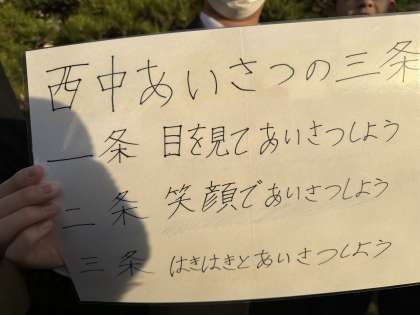 西中あいさつの三条
一条 目を見てあいさつしよう
二条 笑顔であいさつしよう
三条 はきはきとあいさつしよう